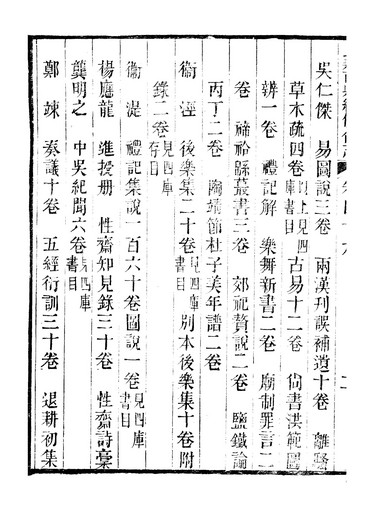 吳仁傑　易圖說三卷　兩漢刊誤補遺十卷　離騷
草木疏四卷以上見四庫書目古易十二卷　尙書洪範圖
辨一卷　禮記解　樂舞新書二卷　廟制罪言二
卷　禘祫緜蕞書三卷　郊祀贅說二卷　鹽鐵論
丙丁二卷　陶靖節杜子美年譜二卷
衞涇　後樂集二十卷見四庫書目　別本後樂集十卷附
錄二卷見四庫存目
衞湜　禮記集說一百六十卷圖說一卷見四庫書目
楊應龍　進授册　性齋知見錄三十卷　性齋詩稾
龔明之　中吳紀聞六卷見四庫書目
鄭竦　奏議十卷　五經衍訓三十卷　退耕初集